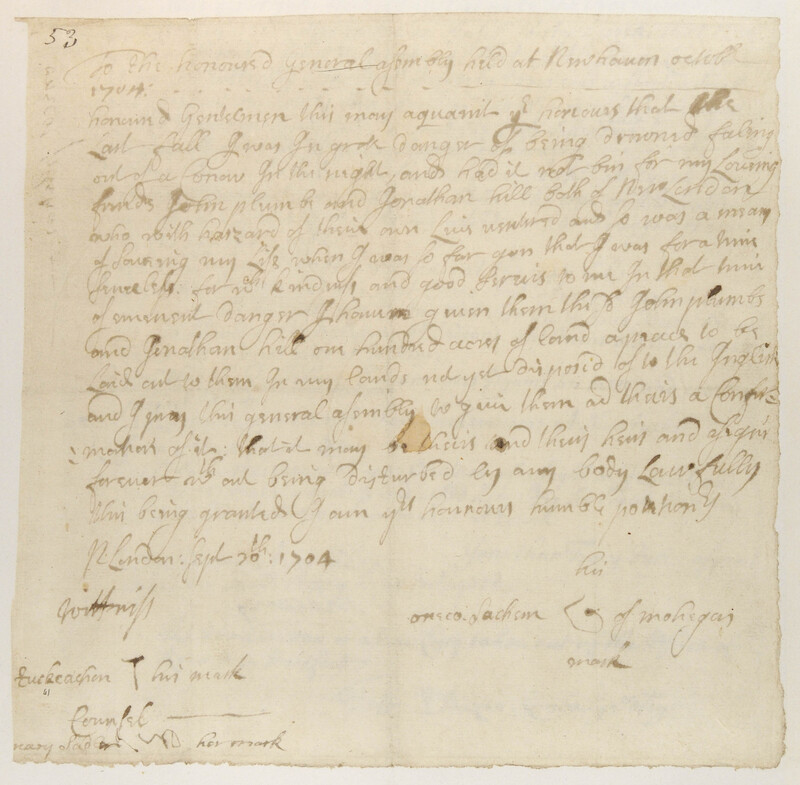 53
To the honoured general asembly held at Newhaven octobr
1704:
honourd Gentelmen this may aquanit yr honours that the
Last fall I was In gret danger of being drowned faling
out of a Conow In the night, and had it not bin for my Loveing
frinds John plumbe and Jonathan hill both of New London
who with hazard of their own Livs ventered and so was a mean
of saveing my Life when I was so far gon that I was for a time
senceless: for wch kindness and good servis to me In that time
of eminent danger I have given them the sd John plumbe
and Jonathan hill one hundred acres of land apeace to be
Laid out to them In my lands not yet disposed of to the Inglish
and I pray this general asembly to give them and theirs a Confir=
mation of it: that it may be theirs and theirs heirs and asigns
forever without being disturbed by any body Law fully
this being granted I am yrs honnours humble
N London: sept 20th: 1704
his
wittniss
oneco: Sachem of mohegan
mark
his mark
Counsel
her mark